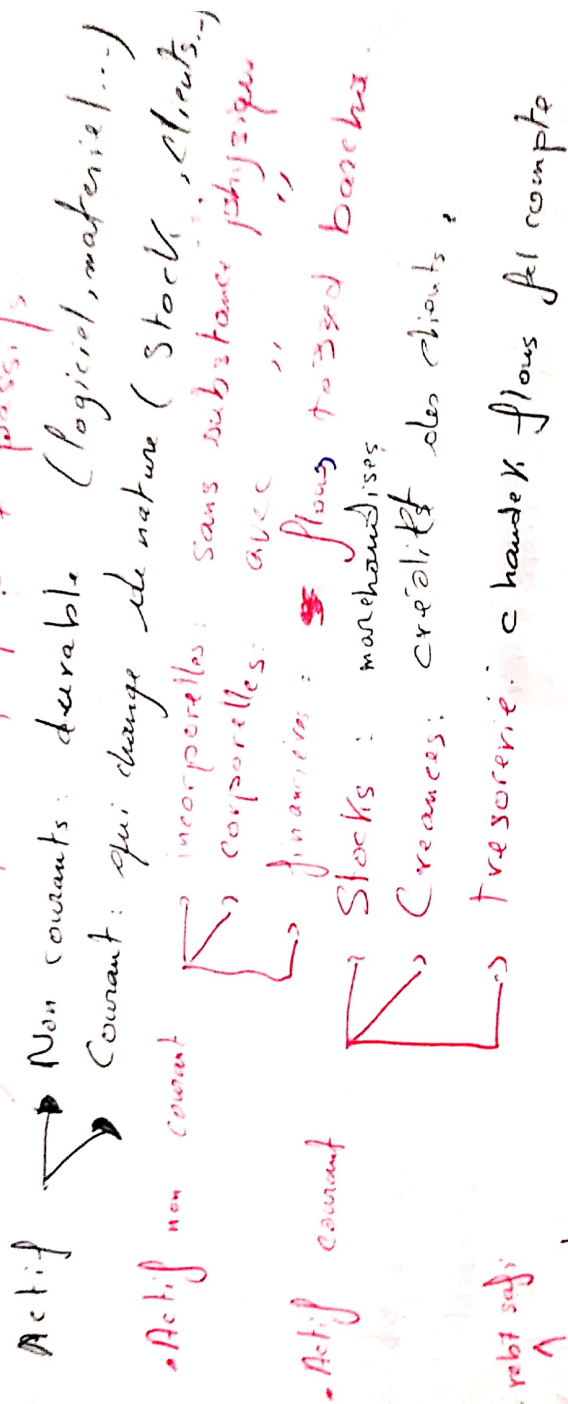 passifs
Actif → Non courants: durable (logiciel, materiel...)
→ Courant: qui change de nature (Stock, clients...)
• Actif non courant → incorporelles: sans substance physique
→ corporelles: avec " "
→ financières: flous to3red barcha.
• Actif courant → Stocks: marchandises
→ Creances: crédits des clients.
→ tresorerie: chandek flous fel compte